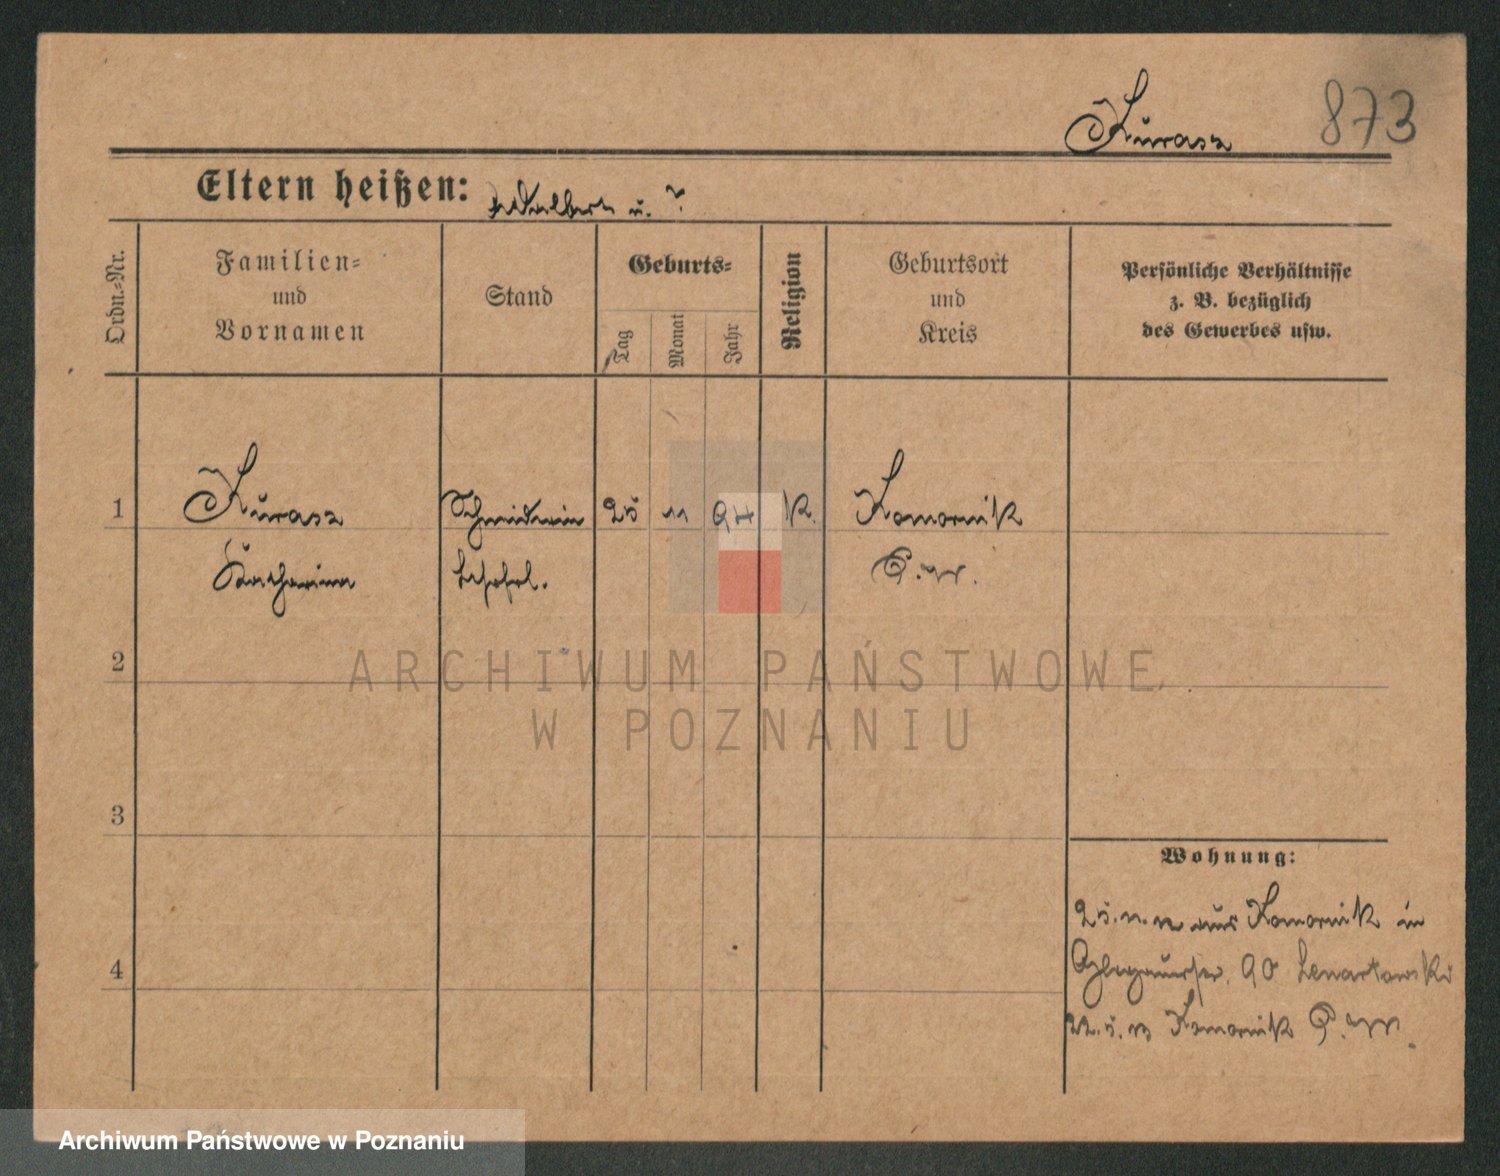 Kurasz 873
Eltern heißen: Adalbert u. ?
Ordn.-Nr.
Familien-
und
Vornamen
Stand
Geburts-
Tag
Monat
Jahr
Religion
Geburtsort
und
Kreis
Persönliche Verhältnisse
z. B. bezüglich
des Gewerbes usw.
1 Kurasz Schneiderin 25 11 97 K. Komornik
Katharina P.W.
2
3
4
ARCHIWUM PAŃSTWOWE
W POZNANIU
Wohnung:
aus Komornik in
90 Lenartowski
Komornik P.W.
Archiwum Państwowe w Poznaniu